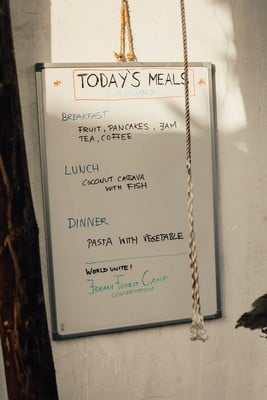 TODAY'S MEALS
BREAKFAST
FRUIT, PANCAKES, JAM
TEA, COFFEE
LUNCH
COCONUT CASAVA
WITH FISH
DINNER
PASTA WITH VEGETABLE
WORLD UNITE!
JOZANI TOURIST CAMP
CONSERVATION